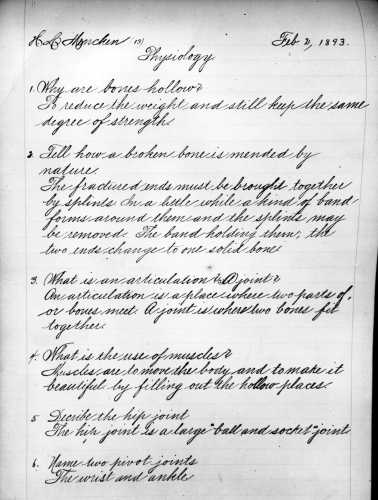 H L Mencken 13) Feb 2, 1893.
Physiology
1. Why are bones hollow?
To reduce the weight and still keep the same
degree of strength.
2. Tell how a broken bone is mended by
nature
The fractured ends must be brought together
by splints. In a little while a kind of band
forms around them and the splints may
be removed. The band holding them, the
two ends change to one solid bone
3. What is an articulation & A joint?
An articulation is a place where two parts of
or bones meet. A joint is where two bones fit
together.
4. What is the use of muscles?
Muscles are to move the body and to make it
beautiful by filling out the hollow places.
5 Decribe the hip joint
The hip joint is a large "ball and socket" joint
6. Name two pivot joints
The wrist and ankle